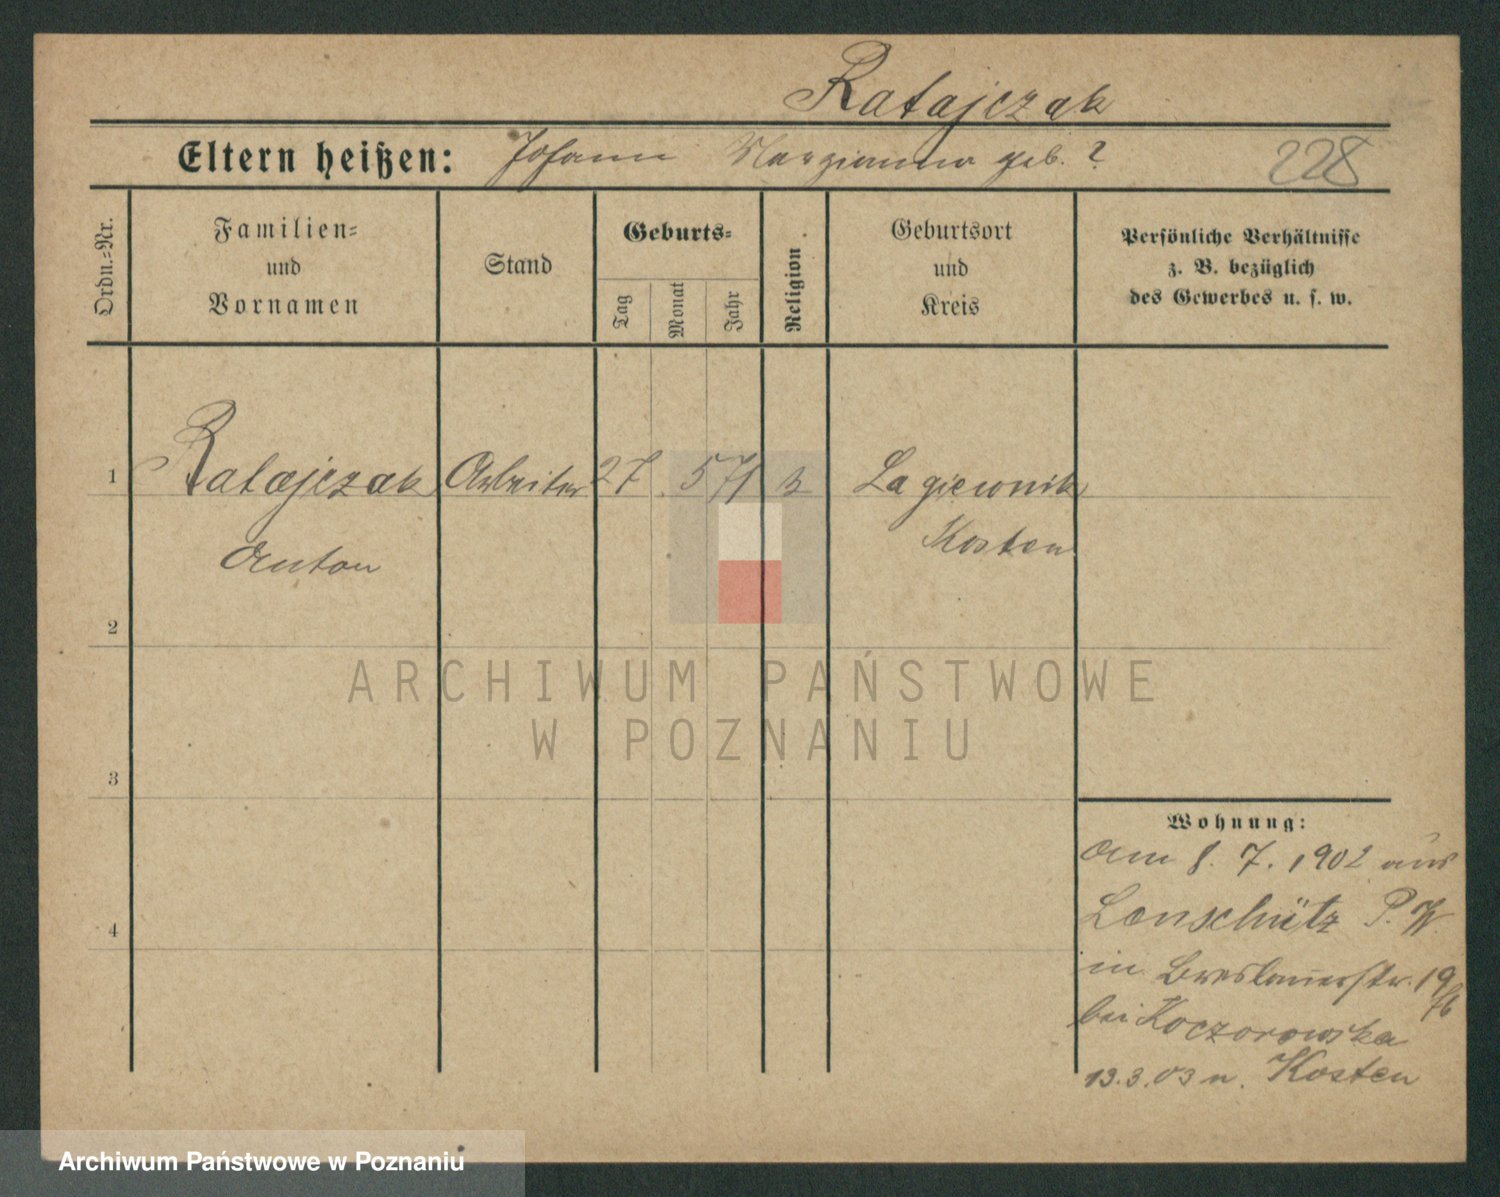 Ratajczak
Eltern heißen: Johann Marzianna geb. ?
228
Ordn.-Nr.
Familien-
und
Vornamen
Stand
Geburts-
Tag
Monat
Jahr
Religion
Geburtsort
und
Kreis
Persönliche Verhältnisse
z. B. bezüglich
des Gewerbes u. s. w.
1 Ratajczak Arbeiter 27. 5 71 Lagiewnik
Anton Kosten
2
3
4
Wohnung:
Am 8. 7. 1902 aus
Lonschütz P. W.
in Breslauerstr. 19
bei Koczorowska
13. 3. 03 n. Kosten
ARCHIWUM PAŃSTWOWE
W POZNANIU
Archiwum Państwowe w Poznaniu